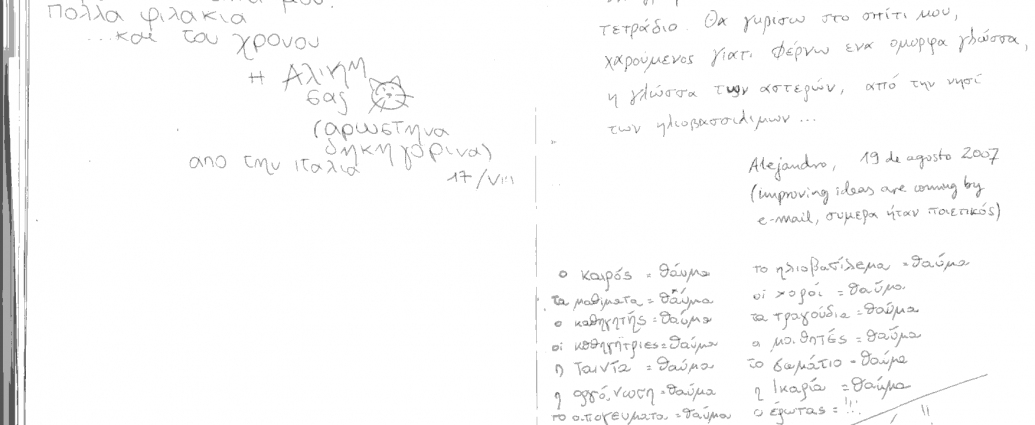 πολλα φιλακια
...και του χρονου
η Αλικη
σας
(αρωστηνα
δηκηγορινα)
απο την ιταλια
17/VIII
τετράδιο. Θα γυρισω στο σπίτι μου,
χαρούμενος γιατι φέρνω ενα ομορφα γλώσσα,
η γλώσσα των αστερών, από την νησί
των ηλιοβασσιλιμων ...
Alejandro, 19 de agosto 2007
(improving ideas are coming by
e-mail, συμερα ήταν ποιετικός)
ο καιρός = θαύμα
τα μαθιματα = θαύμα
ο καθηγητής = θαύμα
οι καθηγήτριες = θαύμα
η ταιντα = θαύμα
η οργάνωση = θαύμα
το απογευματα = θαύμα
το ηλιοβατίλεμα = θαύμα
οι χοροί = θαύμα
τα τραγούδια = θαύμα
α μαθητές = θαύμα
το σωμάτιο = θαύμα
η Ικαρία = θαύμα
ο έρωτας = !!!
!!